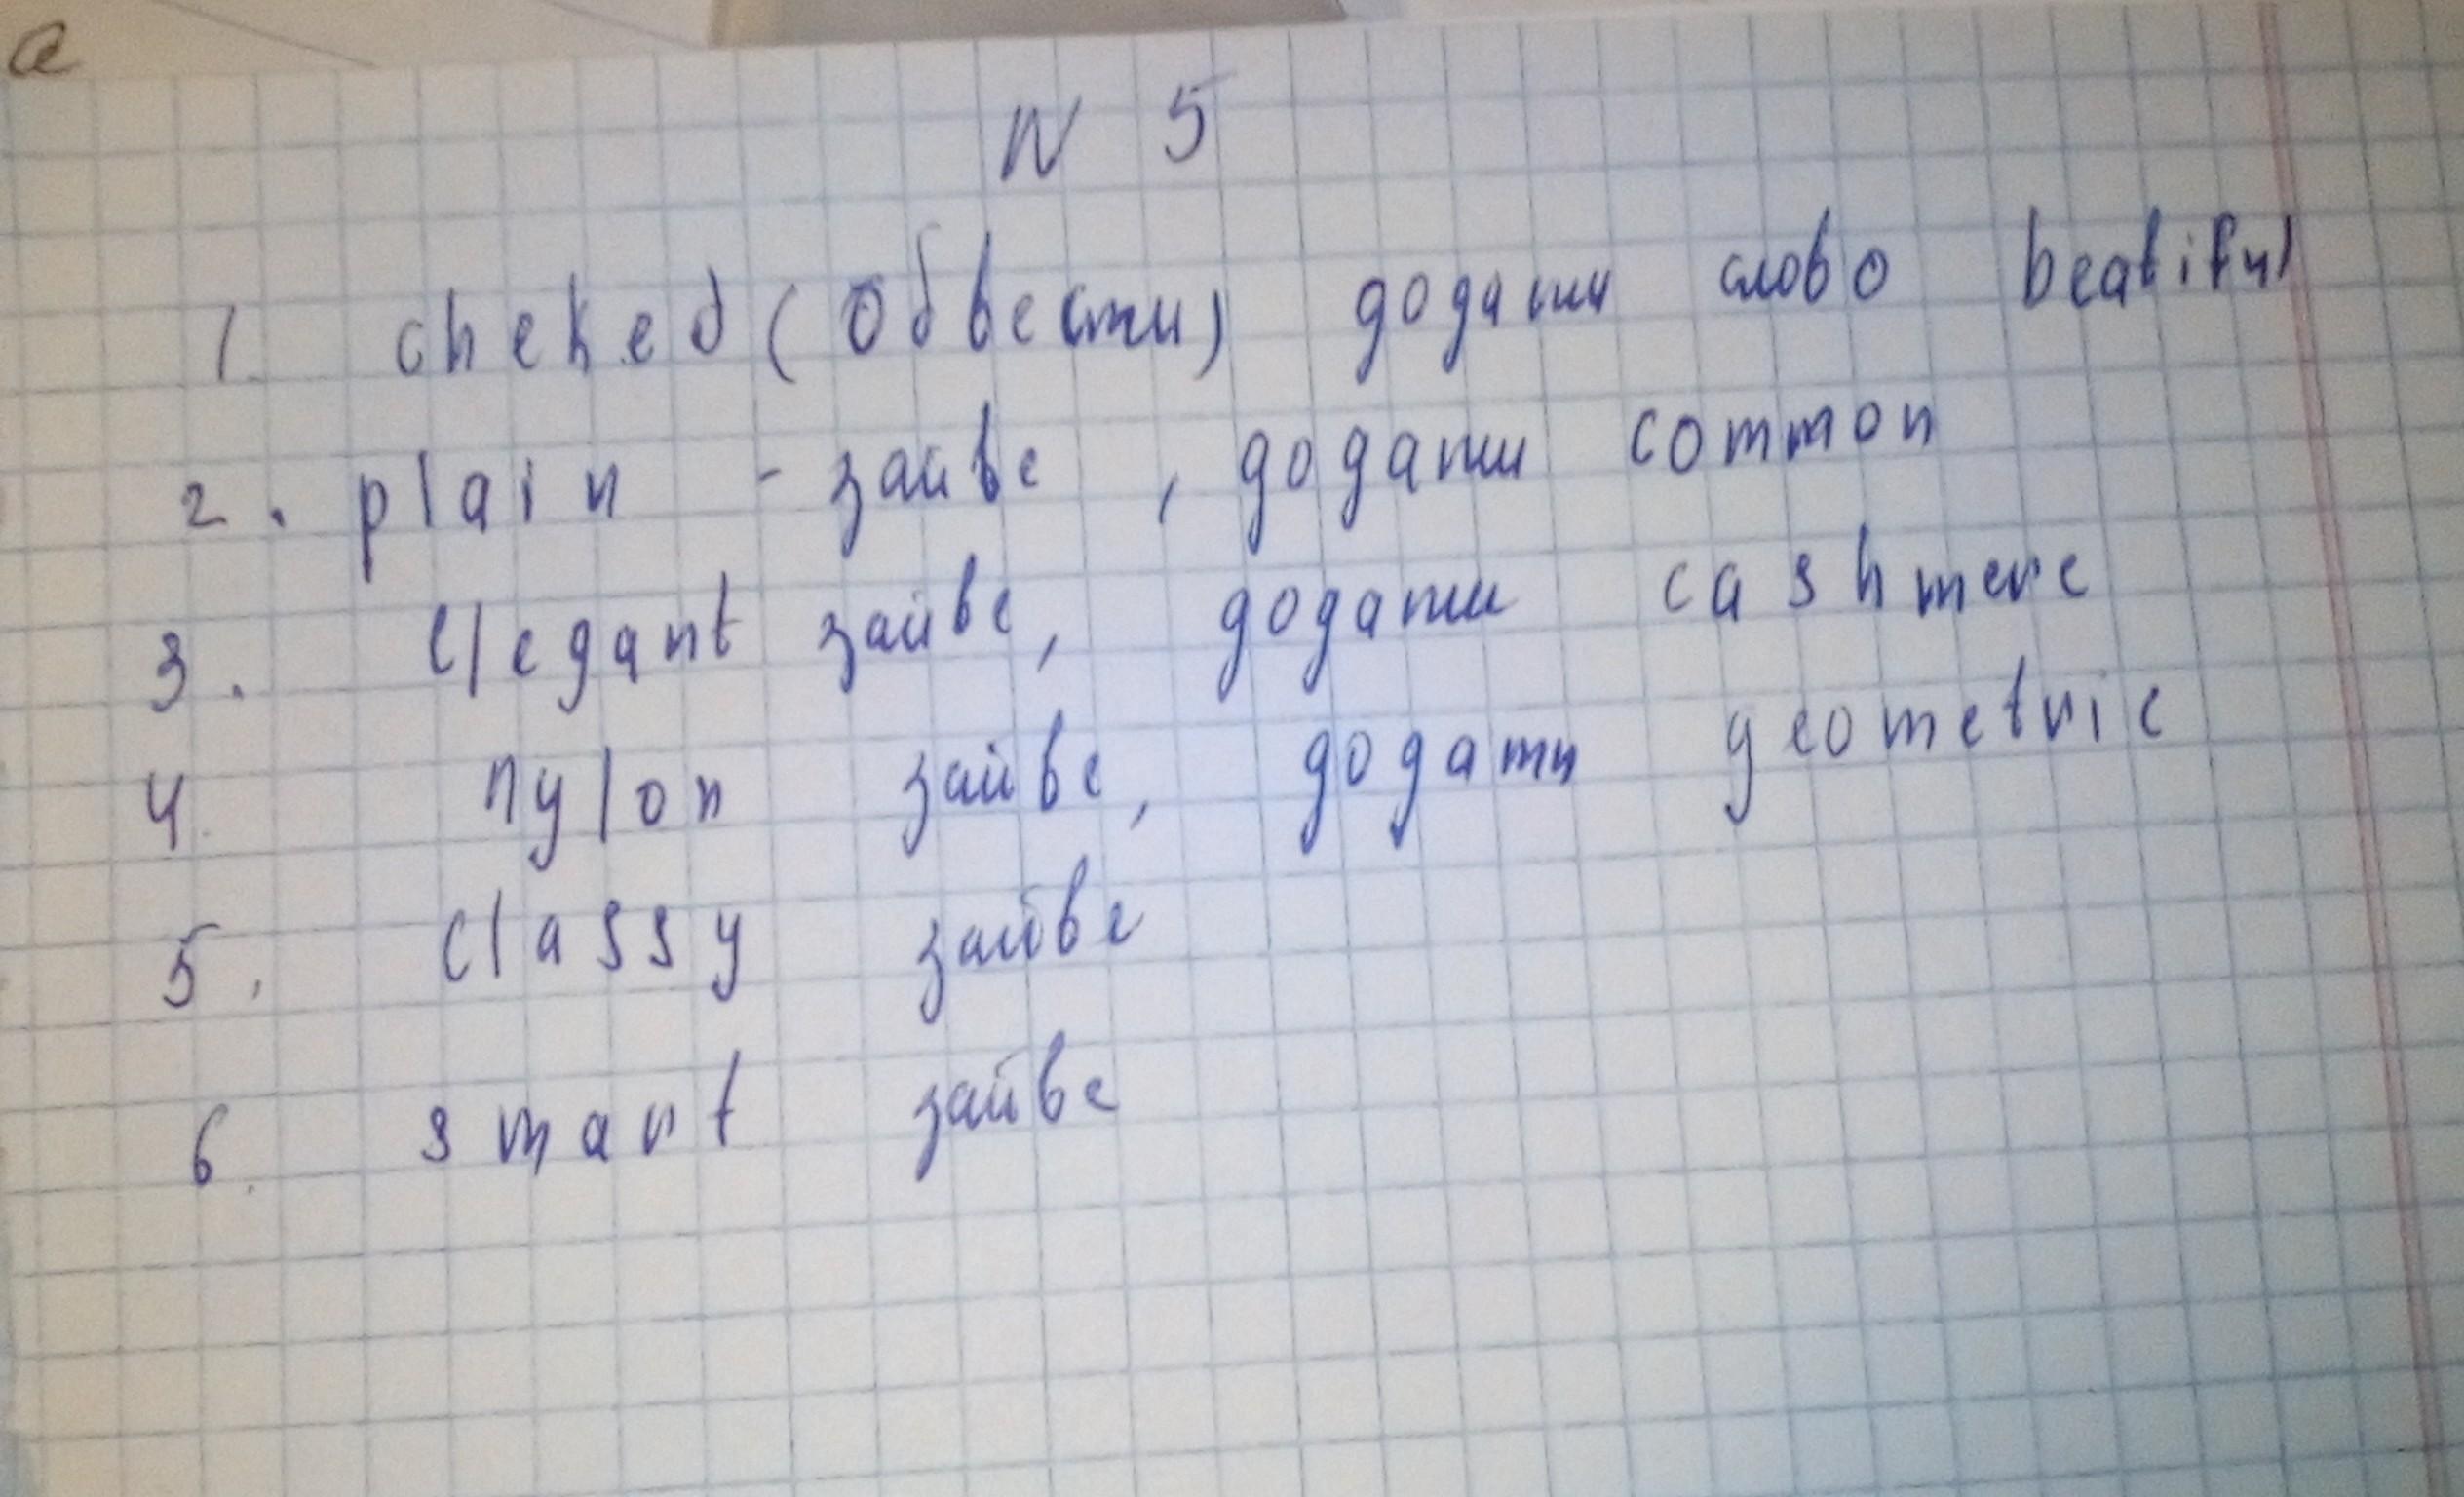 а
N 5
1. cheked (обвести) додати слово beatiful
2. plain - зайве, додати common
3. elegant зайве, додати cashmere
4. nylon зайве, додати geometric
5. classy зайве
6. smart зайве